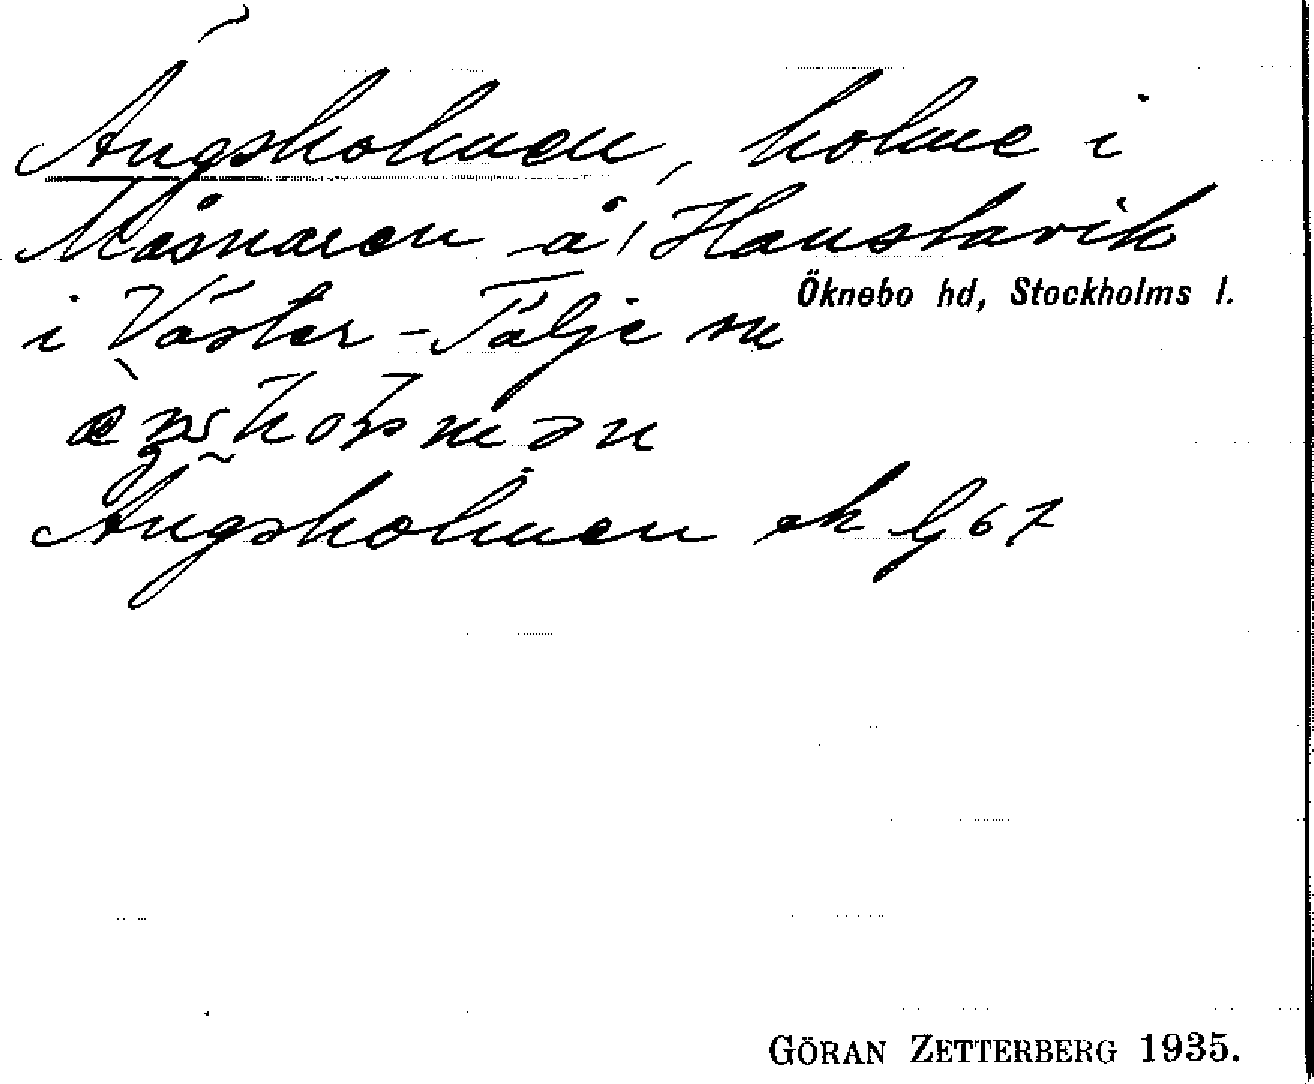 Ängsholmen, holme i
Måsnaren å, Hanstavik
Öknebo hd, Stockholms l.
i Väster-Tälje sn
Ängsholmen ek
GÖRAN ZETTERBERG 1935.